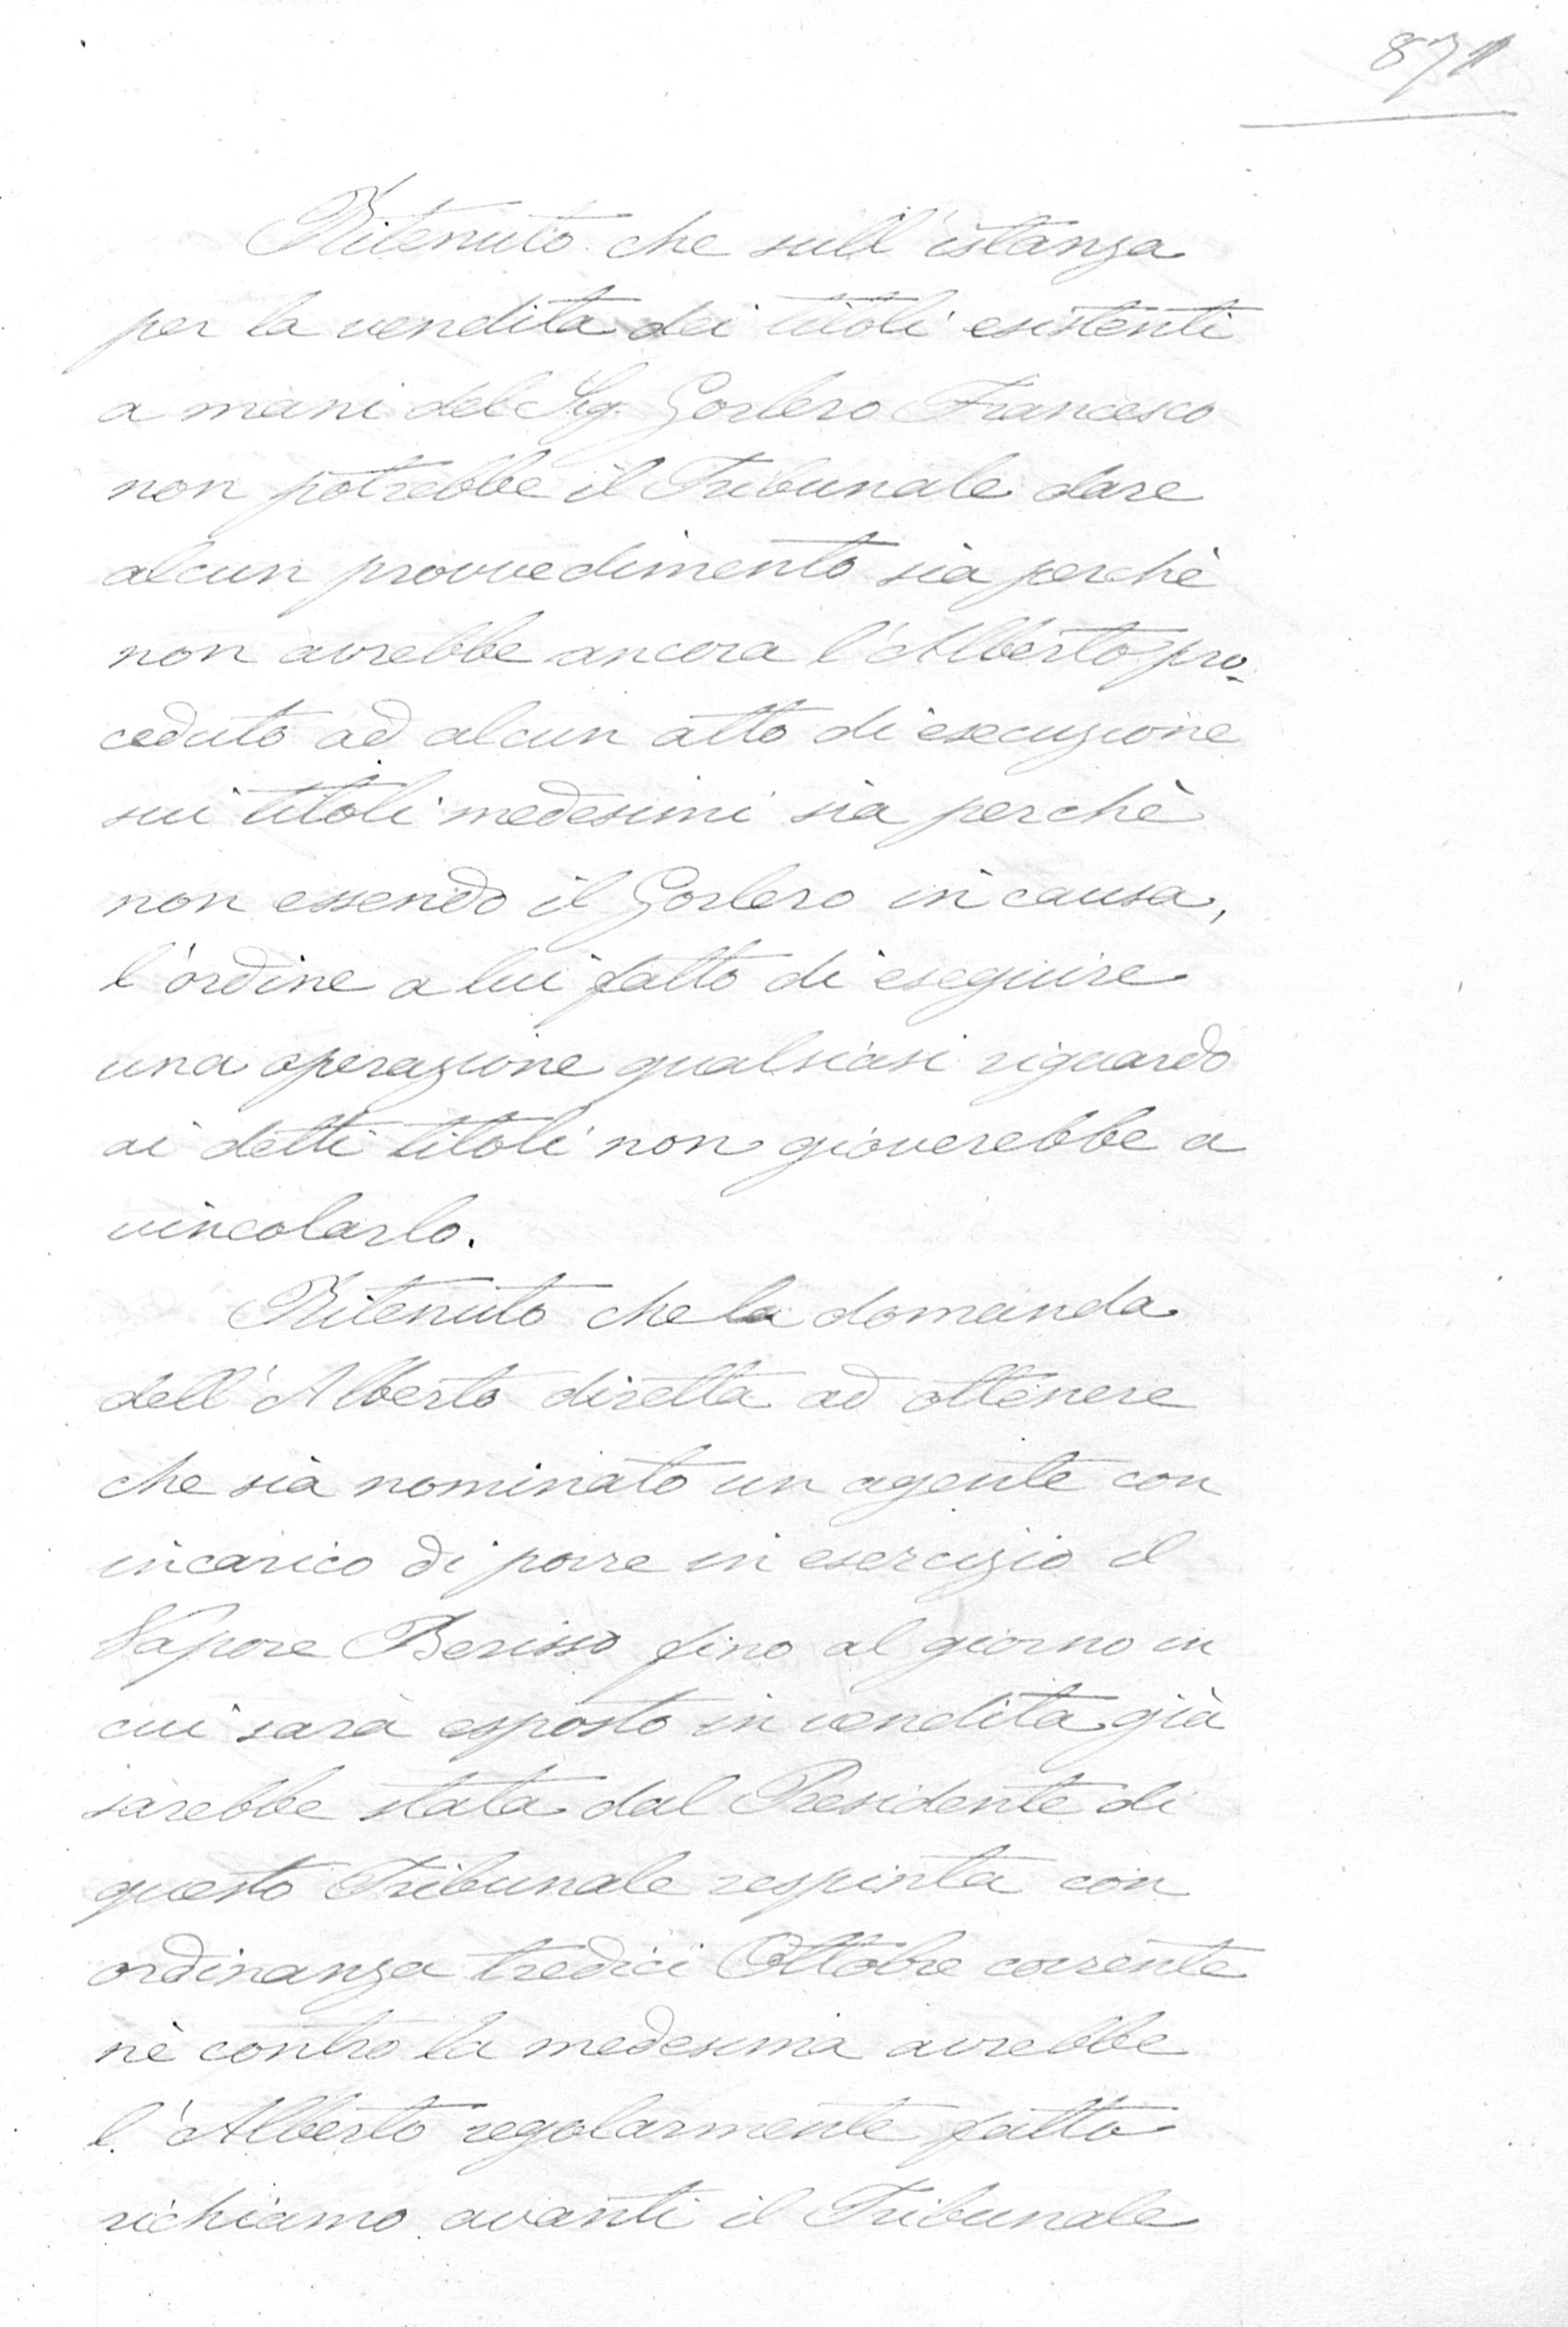 871
Ritenuto che sull'istanza
per la vendita dei titoli esistenti
a mani del Sig. Gorlero Francesco
non potrebbe il Tribunale dare
alcun provvedimento sia perchè
non avrebbe ancora l'Alberto pro-
ceduto ad alcun atto di esecuzione
sui titoli medesimi sia perchè
non essendo il Gorlero in causa,
l'ordine a lui fatto di eseguire
una operazione qualsiasi riguardo
ai detti titoli non gioverebbe a
vincolarlo.
Ritenuto che la domanda
dell'Alberto diretta ad ottenere
che sia nominato un agente con
incarico di porre in esercizio il
Vapore Berisso fino al giorno in
cui sarà esposto in vendita già
sarebbe stata dal Presidente di
questo Tribunale respinta con
ordinanza tredici Ottobre corrente
nè contro la medesima avrebbe
l'Alberto regolarmente fatto
richiamo avanti il Tribunale